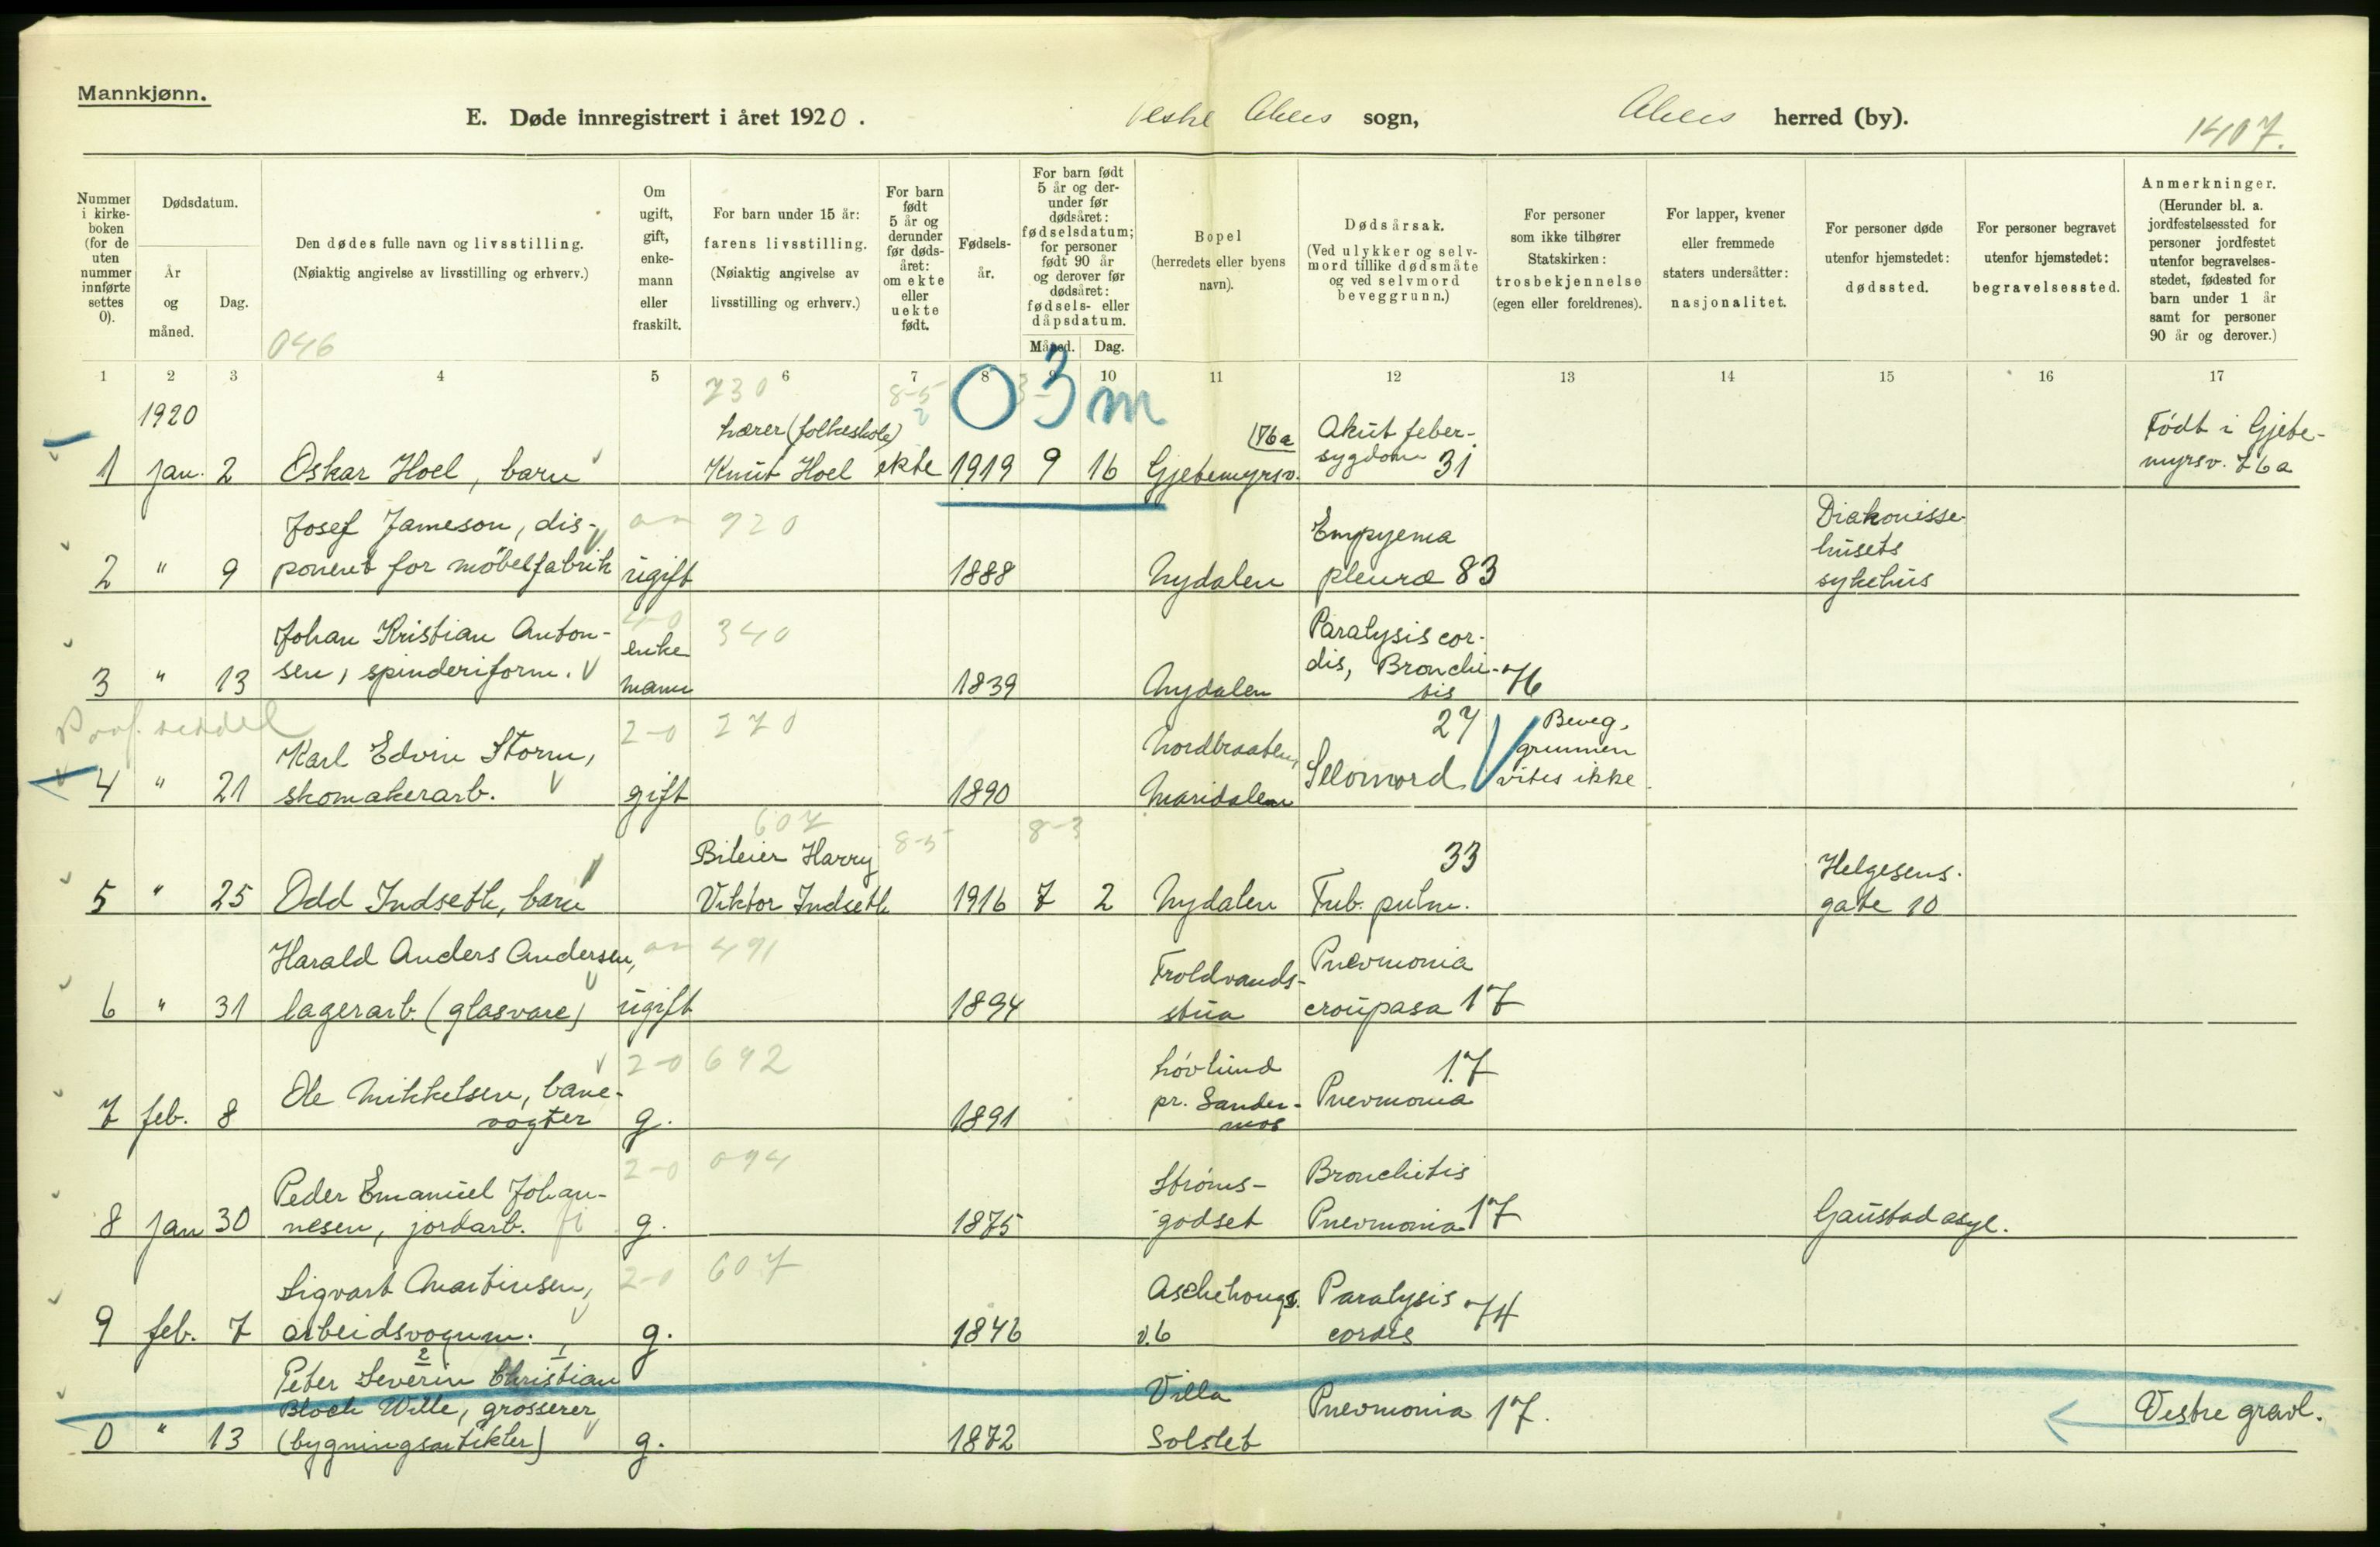 Mannkjønn.
E. Døde innregistrert i året 1920.
Vestre Akers sogn,
Akers herred (by).
1407.
Nummer i kirke-boken (for de uten nummer innførte settes 0).
Dødsdatum.
År og måned.
Dag.
Den dødes fulle navn og livsstilling.
(Nøiaktig angivelse av livsstilling og erhverv.)
046
Om ugift, gift, enke-mann eller fraskilt.
For barn under 15 år:
farens livsstilling.
(Nøiaktig angivelse av livsstilling og erhverv.)
For barn født 5 år og derunder før døds-året: om ekte eller uekte født.
Fødsels-år.
For barn født 5 år og der-under før dødsåret: fødselsdatum; for personer født 90 år og derover før dødsåret: fødsels- eller dåpsdatum.
Måned.
Dag.
Bopel
(herredets eller byens navn).
Dødsårsak.
(Ved ulykker og selv-mord tillike dødsmåte og ved selvmord beveggrunn.)
For personer som ikke tilhører Statskirken:
trosbekjennelse
(egen eller foreldrenes).
For lapper, kvener eller fremmede staters undersåtter:
nasjonalitet.
For personer døde utenfor hjemstedet:
dødssted.
For personer begravet utenfor hjemstedet:
begravelsessted.
Anmerkninger.
(Herunder bl. a. jordfestelsessted for personer jordfestet utenfor begravelses-stedet, fødested for barn under 1 år samt for personer 90 år og derover.)
1 2 3 4 5 6 7 8 9 10 11 12 13 14 15 16 17
1920
230 8-5 03 m
Lærer (folkeskole) 76a Akut feber- Født i Gjete-
1 jan. 2 Oskar Hoel, barn Knut Hoel ekte 1919 9 16 Gjetemyrsv. sygdom 31 myrsv. 76a
Josef Jameson, dis- 920 Empyema Diakonisse-
husets
2 " 9 ponent for møbelfabrik ugift 1888 Nydalen pleuræ 83 sykehus
Johan Kristian Anton- 4-0 enke 340 Paralysis cor-
sen, spinderiform. dis, Bronchi-
3 " 13 mann 1839 Nydalen tis 76
2-0 270 Nordbraaten, 27 Beveg-
Karl Edvin Storm, grunnen
4 " 21 skomakerarb. gift 1890 Maridalen Selvmord vites ikke
607 8-5 8-3
Bileier Harry 33 Helgesens-
5 " 25 Odd Indseth, barn Viktor Indseth 1916 7 2 Nydalen Tub. pulm. gate 10
Harald Anders Andersen, 491 Troldvands- Pnevmonia
6 " 31 lagerarb. (glasvare) ugift 1894 stua croupasa 17
2-0 692 Løvlund 17
Ole Mikkelsen, bane- pr. Sander- Pnevmonia
7 feb. 8 vogter g. 1891 mos
2-0 094
Peder Emanuel Johan- Strøms- Bronchitis
8 jan 30 nesen, jordarb. g. 1875 godset Pnevmonia 17 Gaustad asyl.
2-0 607
Sigvart Martinsen, Aschehougs. Paralysis 74
9 feb. 7 arbeidsvognm. g. 1846 v.6 cordis
2 1
Peter Severin Christian Villa
Bloch Wille, grosserer Pnevmonia 17. Vestre gravl.
0 " 13 (bygningsartikler) g. 1872 Solslet